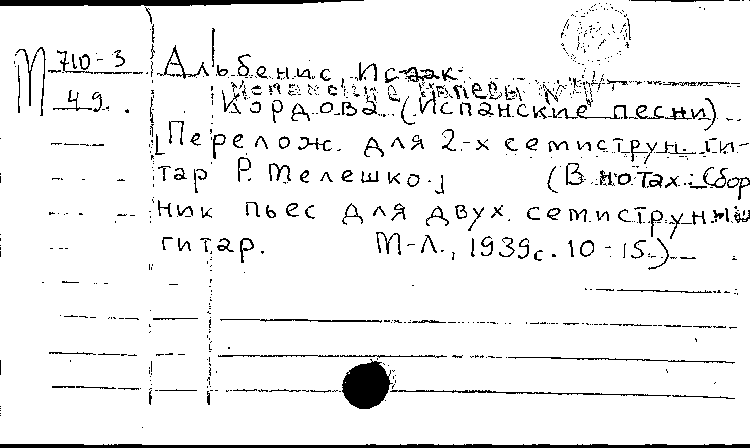 М 710-3
49.
Альбенис, Исаак.
Испанские напевы №
Кордова (Испанские песни)
[Перелож. для 2-х семиструн. ги-
тар Р. Мелешко.] (В нотах: Сбор
ник пьес для двух семиструнных
гитар. М-Л., 1939 с. 10-15.)